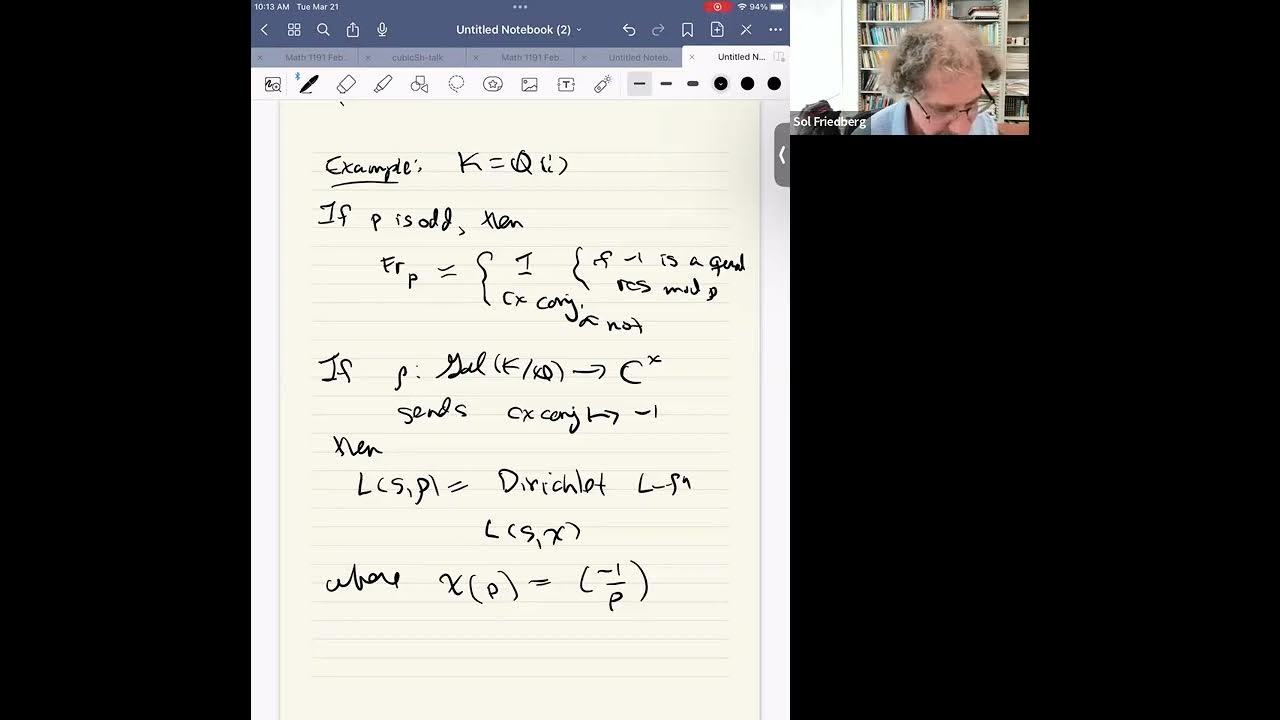 10:13 AM Tue Mar 21
94%
Untitled Notebook (2)
Math 1191 Feb...
cubicSh-talk
Math 1191 Feb...
Untitled Noteb...
Untitled N...
Sol Friedberg
Example: K = Q(i)
If p is odd, then
Fr_p = { I { if -1 is a quad
res mod p
cx conj. if not
If ρ: Gal(K/Q) → C^x
sends cx conj ↦ -1
then
L(s,ρ) = Dirichlet L-fn
L(s,χ)
where χ(p) = (-1/p)